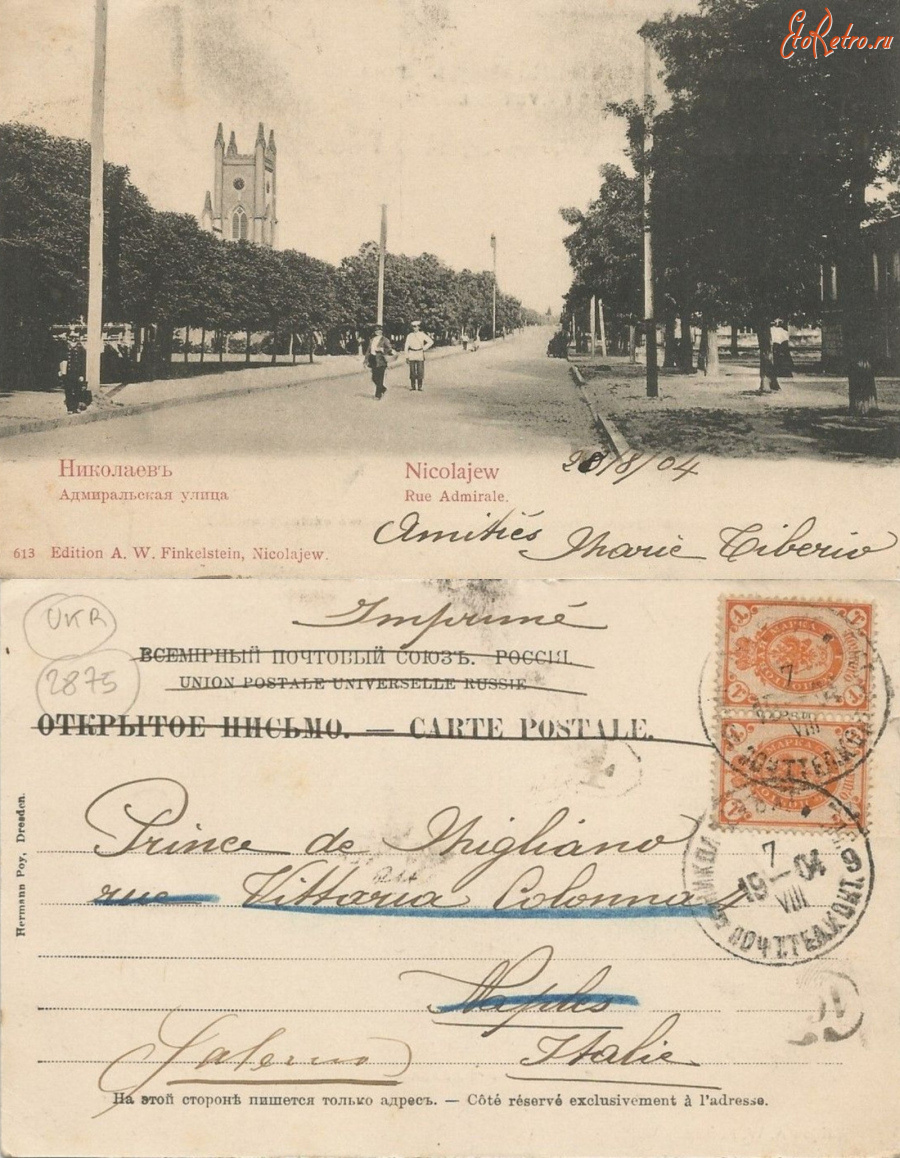 EtoRetro.ru
Николаевъ
Адмиральская улица
Nicolajew
Rue Admirale.
/8/04
Amitiés Marie Tiberio
613 Edition A. W. Finkelstein, Nicolajew.
UKR
2875
Imprimé
ВСЕМІРНЫЙ ПОЧТОВЫЙ СОЮЗЪ. РОССІЯ.
UNION POSTALE UNIVERSELLE RUSSIE
ОТКРЫТОЕ ПИСЬМО. — CARTE POSTALE.
МАРКА
7
VIII
ПОЧТ.ТЕЛ.КОН
МАРКА
Prince de Migliano
rue Vittoria Colonna
7
19–04
VIII
ПОЧТ.ТЕЛ.КОНТ.
Hermann Poy, Dresden.
Naples
Salerno
Italie
На этой сторонѣ пишется только адресъ. — Côté réservé exclusivement à l'adresse.